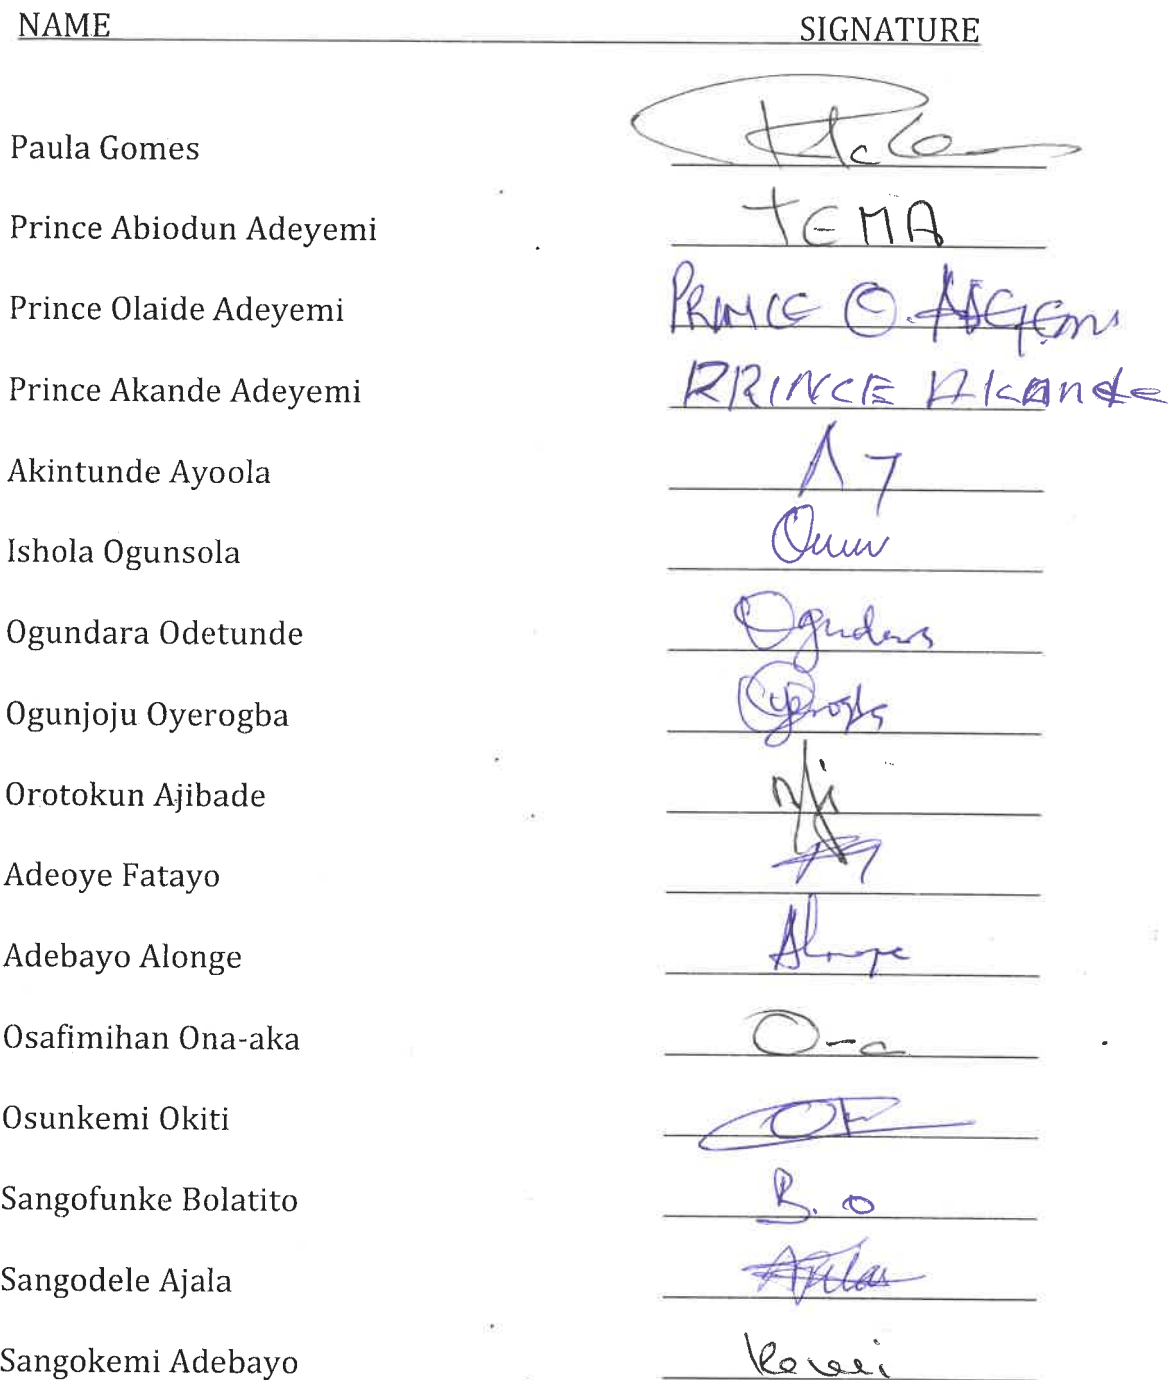 NAME SIGNATURE
Paula Gomes
Prince Abiodun Adeyemi TEMA
Prince Olaide Adeyemi PRINCE O. ADEYEMI
Prince Akande Adeyemi PRINCE Akande
Akintunde Ayoola
Ishola Ogunsola
Ogundara Odetunde
Ogunjoju Oyerogba Oyerogba
Orotokun Ajibade
Adeoye Fatayo
Adebayo Alonge Alonge
Osafimihan Ona-aka
Osunkemi Okiti
Sangofunke Bolatito B. O
Sangodele Ajala Ajala
Sangokemi Adebayo